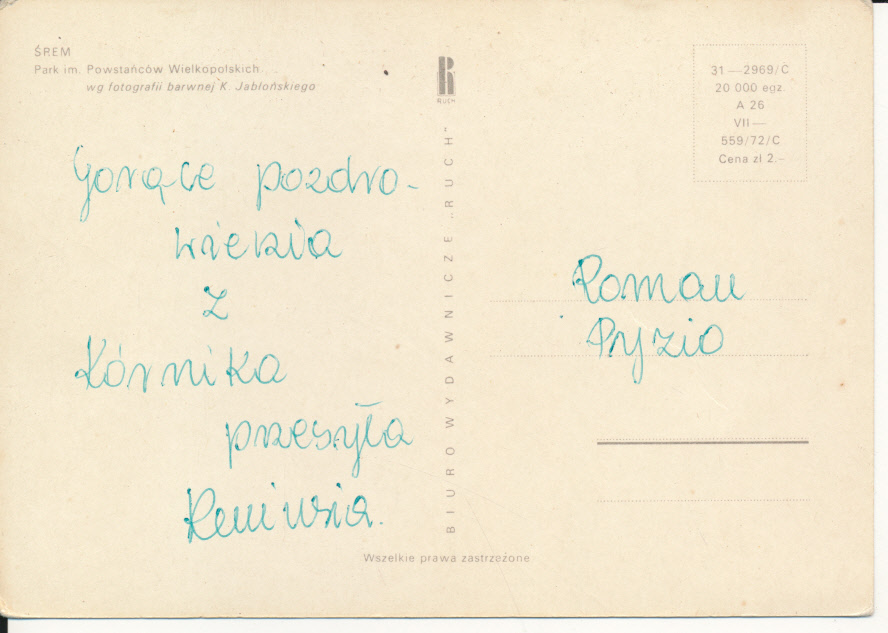 ŚREM
Park im. Powstańców Wielkopolskich
wg fotografii barwnej K. Jabłońskiego
Gorące pozdro-
wienia
z
Kórnika
przesyła
Reniusia.
RUCH
BIURO WYDAWNICZE „RUCH"
31—2969/C
20 000 egz.
A 26
VII—
559/72/C
Cena zł 2.-
Roman
Pyzio
Wszelkie prawa zastrzeżone